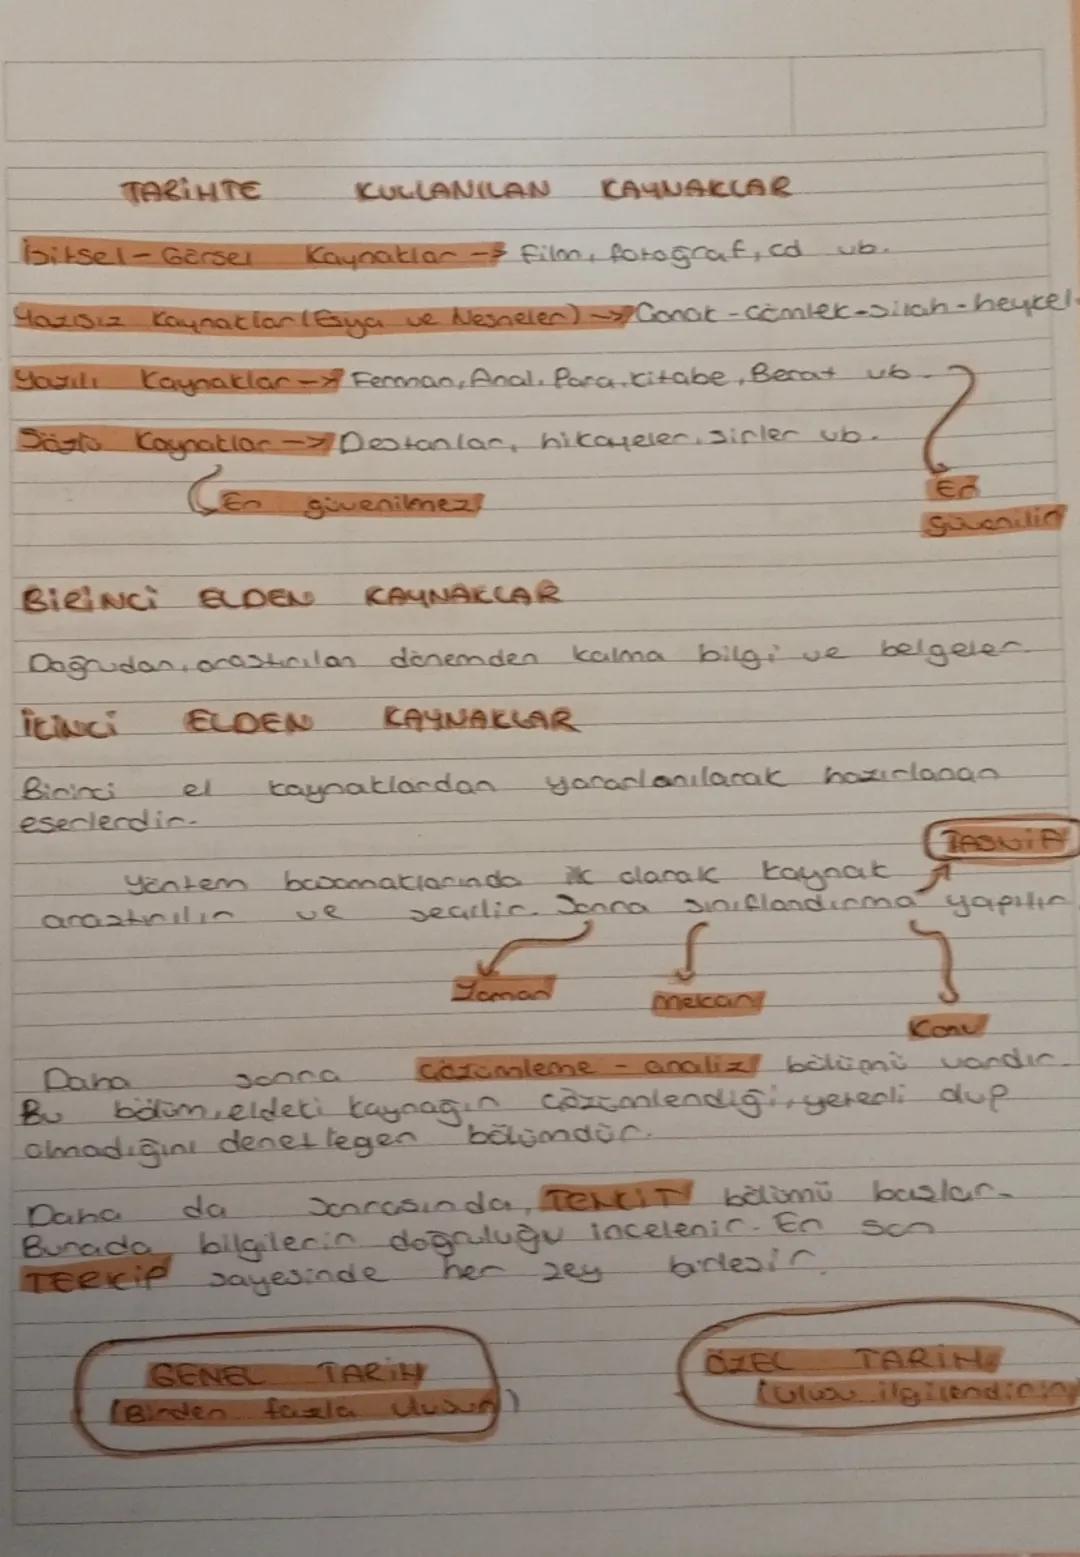 TARİHTE KULLANILAN KAYNAKLAR
İşitsel-Görsel Kaynaklar → Film, fotoğraf, cd vb.
Yazısız Kaynaklar (Eşya ve Nesneler) → Çanak-çömlek-silah-heykel-
Yazılı Kaynaklar → Ferman, Anal, Para, kitabe, Berat vb.
Sözlü Kaynaklar → Destanlar, hikayeler, şiirler vb.
En güvenilmez
En
güvenilir
BİRİNCİ ELDEN KAYNAKLAR
Doğrudan, araştırılan dönemden kalma bilgi ve belgeler
İKİNCİ ELDEN KAYNAKLAR
Birinci el kaynaklardan yararlanılarak hazırlanan
eserlerdir.
TASNİF
Yöntem basamaklarında ilk olarak kaynak
araştırılır ve seçilir. Sonra sınıflandırma yapılır
Zaman
Mekan
Konu
Daha sonra çözümleme - analiz bölümü vardır.
Bu bölüm, eldeki kaynağın çözümlendiği, yeterli olup
olmadığını denetlegen bölümdür.
Daha da sonrasında, TENKİT bölümü başlar.
Burada bilgilerin doğruluğu incelenir. En son
TERKİP sayesinde her şey birleşir.
GENEL TARİH
(Birden fazla ulusun)
ÖZEL TARİH
(ulusu ilgilendiren)